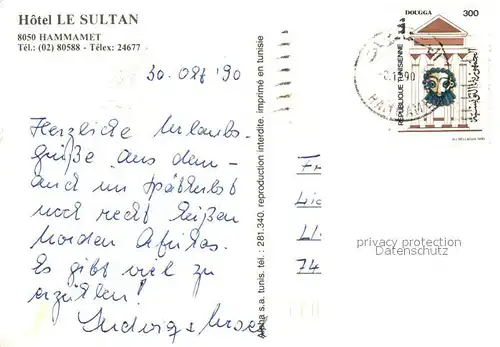 Hôtel LE SULTAN
8050 HAMMAMET
Tél.: (02) 80588 - Télex: 24677
30. Okt '90
Herzliche Urlaubs-
grüße aus dem -
auch im Spätherbst
noch recht heißen
Norden Afrikas.
Es gibt viel zu
erzählen!
Alpha s.a. tunis. tél.: 281.340. reproduction interdite. imprimé en tunisie
DOUGGA
300
REPUBLIQUE TUNISIENNE
الجمهورية التونسية
90
74
privacy protection
Datenschutz